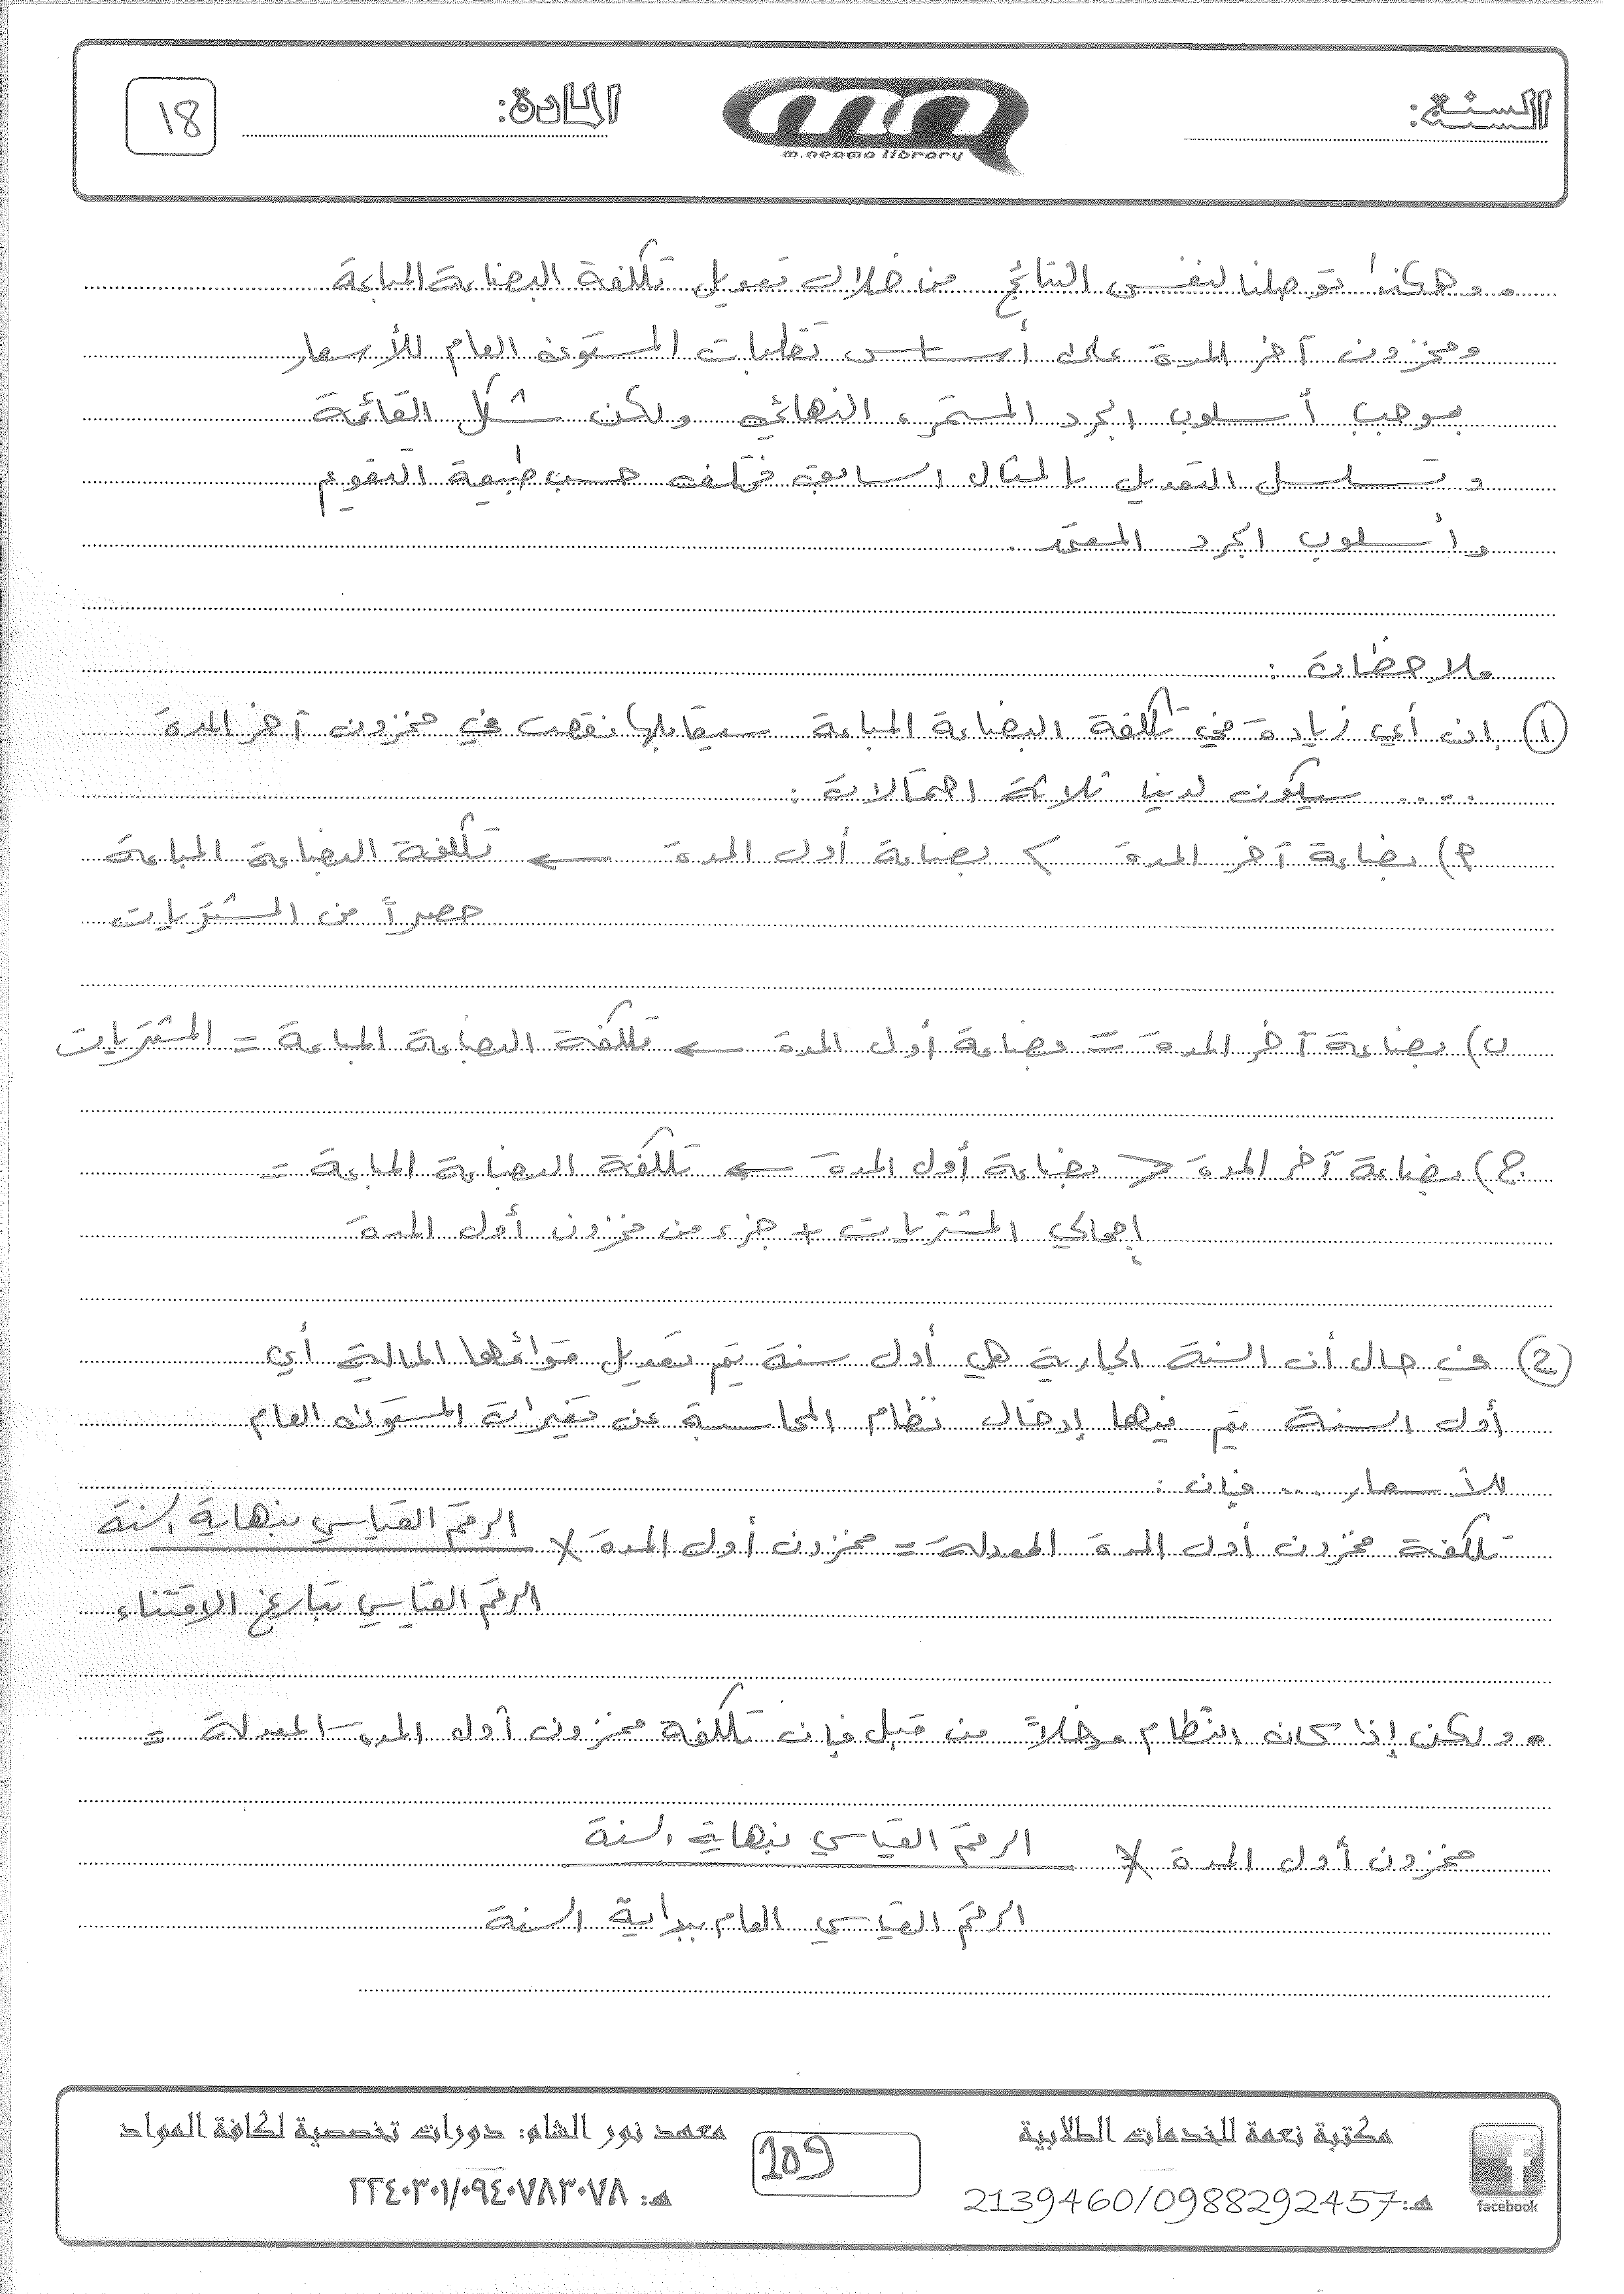 السنة:
m.neama library
المادة:
18
• وهكذا توصلنا لنفس النتائج من خلال تعديل تكلفة البضاعة المباعة
ومخزون آخر المدة على أساس تقلبات المستوى العام للأسعار
بموجب أسلوب الجرد المستمر، النهائي ولكن شكل القائمة
وتسلسل التعديل بالمثال السابق مختلف حسب طبيعة التقويم
وأسلوب الجرد المعتمد.
ملاحظات :
① إن أي زيادة في تكلفة البضاعة المباعة سيقابلها نقص في مخزون آخر المدة
.... سيكون لدينا ثلاثة احتمالات :
أ) بضاعة آخر المدة > بضاعة أول المدة ← تكلفة البضاعة المباعة
حصراً من المشتريات
ب) بضاعة آخر المدة = بضاعة أول المدة ← تكلفة البضاعة المباعة = المشتريات
ج) بضاعة آخر المدة < بضاعة أول المدة ← تكلفة البضاعة المباعة =
إجمالي المشتريات + جزء من مخزون أول المدة
② في حال أن السنة الجارية هي أول سنة يتم تعديل قوائمها المالية أي
أول السنة يتم فيها إدخال نظام المحاسبة عن تغيرات المستوى العام
للأسعار .... فإن :
تكلفة مخزون أول المدة المعدلة = مخزون أول المدة × الرقم القياسي بنهاية السنة
الرقم القياسي بتاريخ الاقتناء
• ولكن إذا كان النظام مدخلاً من قبل فإن تكلفة مخزون أول المدة المعدلة =
مخزون أول المدة × الرقم القياسي بنهاية السنة
الرقم القياسي العام ببداية السنة
مكتبة نعمة للخدمات الطلابية
هـ: 2139460/0988292457
facebook
109
معهد نور الشام: دورات تخصصية لكافة المواد
هـ: ٢٢٤٠٣٠١/٠٩٤٠٧٨٣٠٧٨